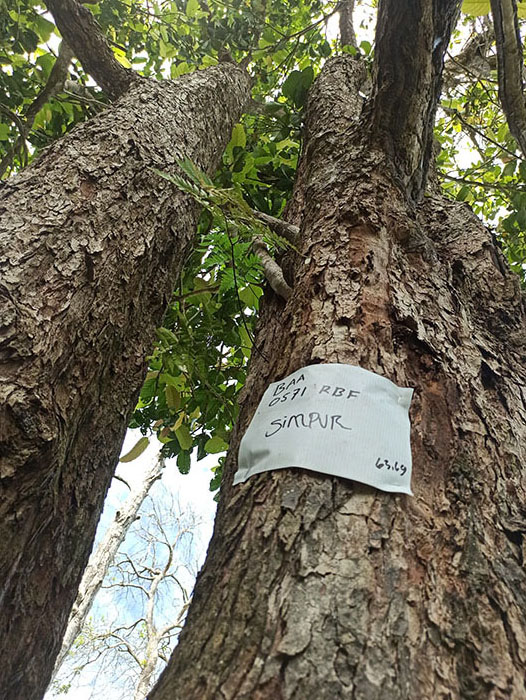 BAA
0571 RBF
SIMPUR
63,69